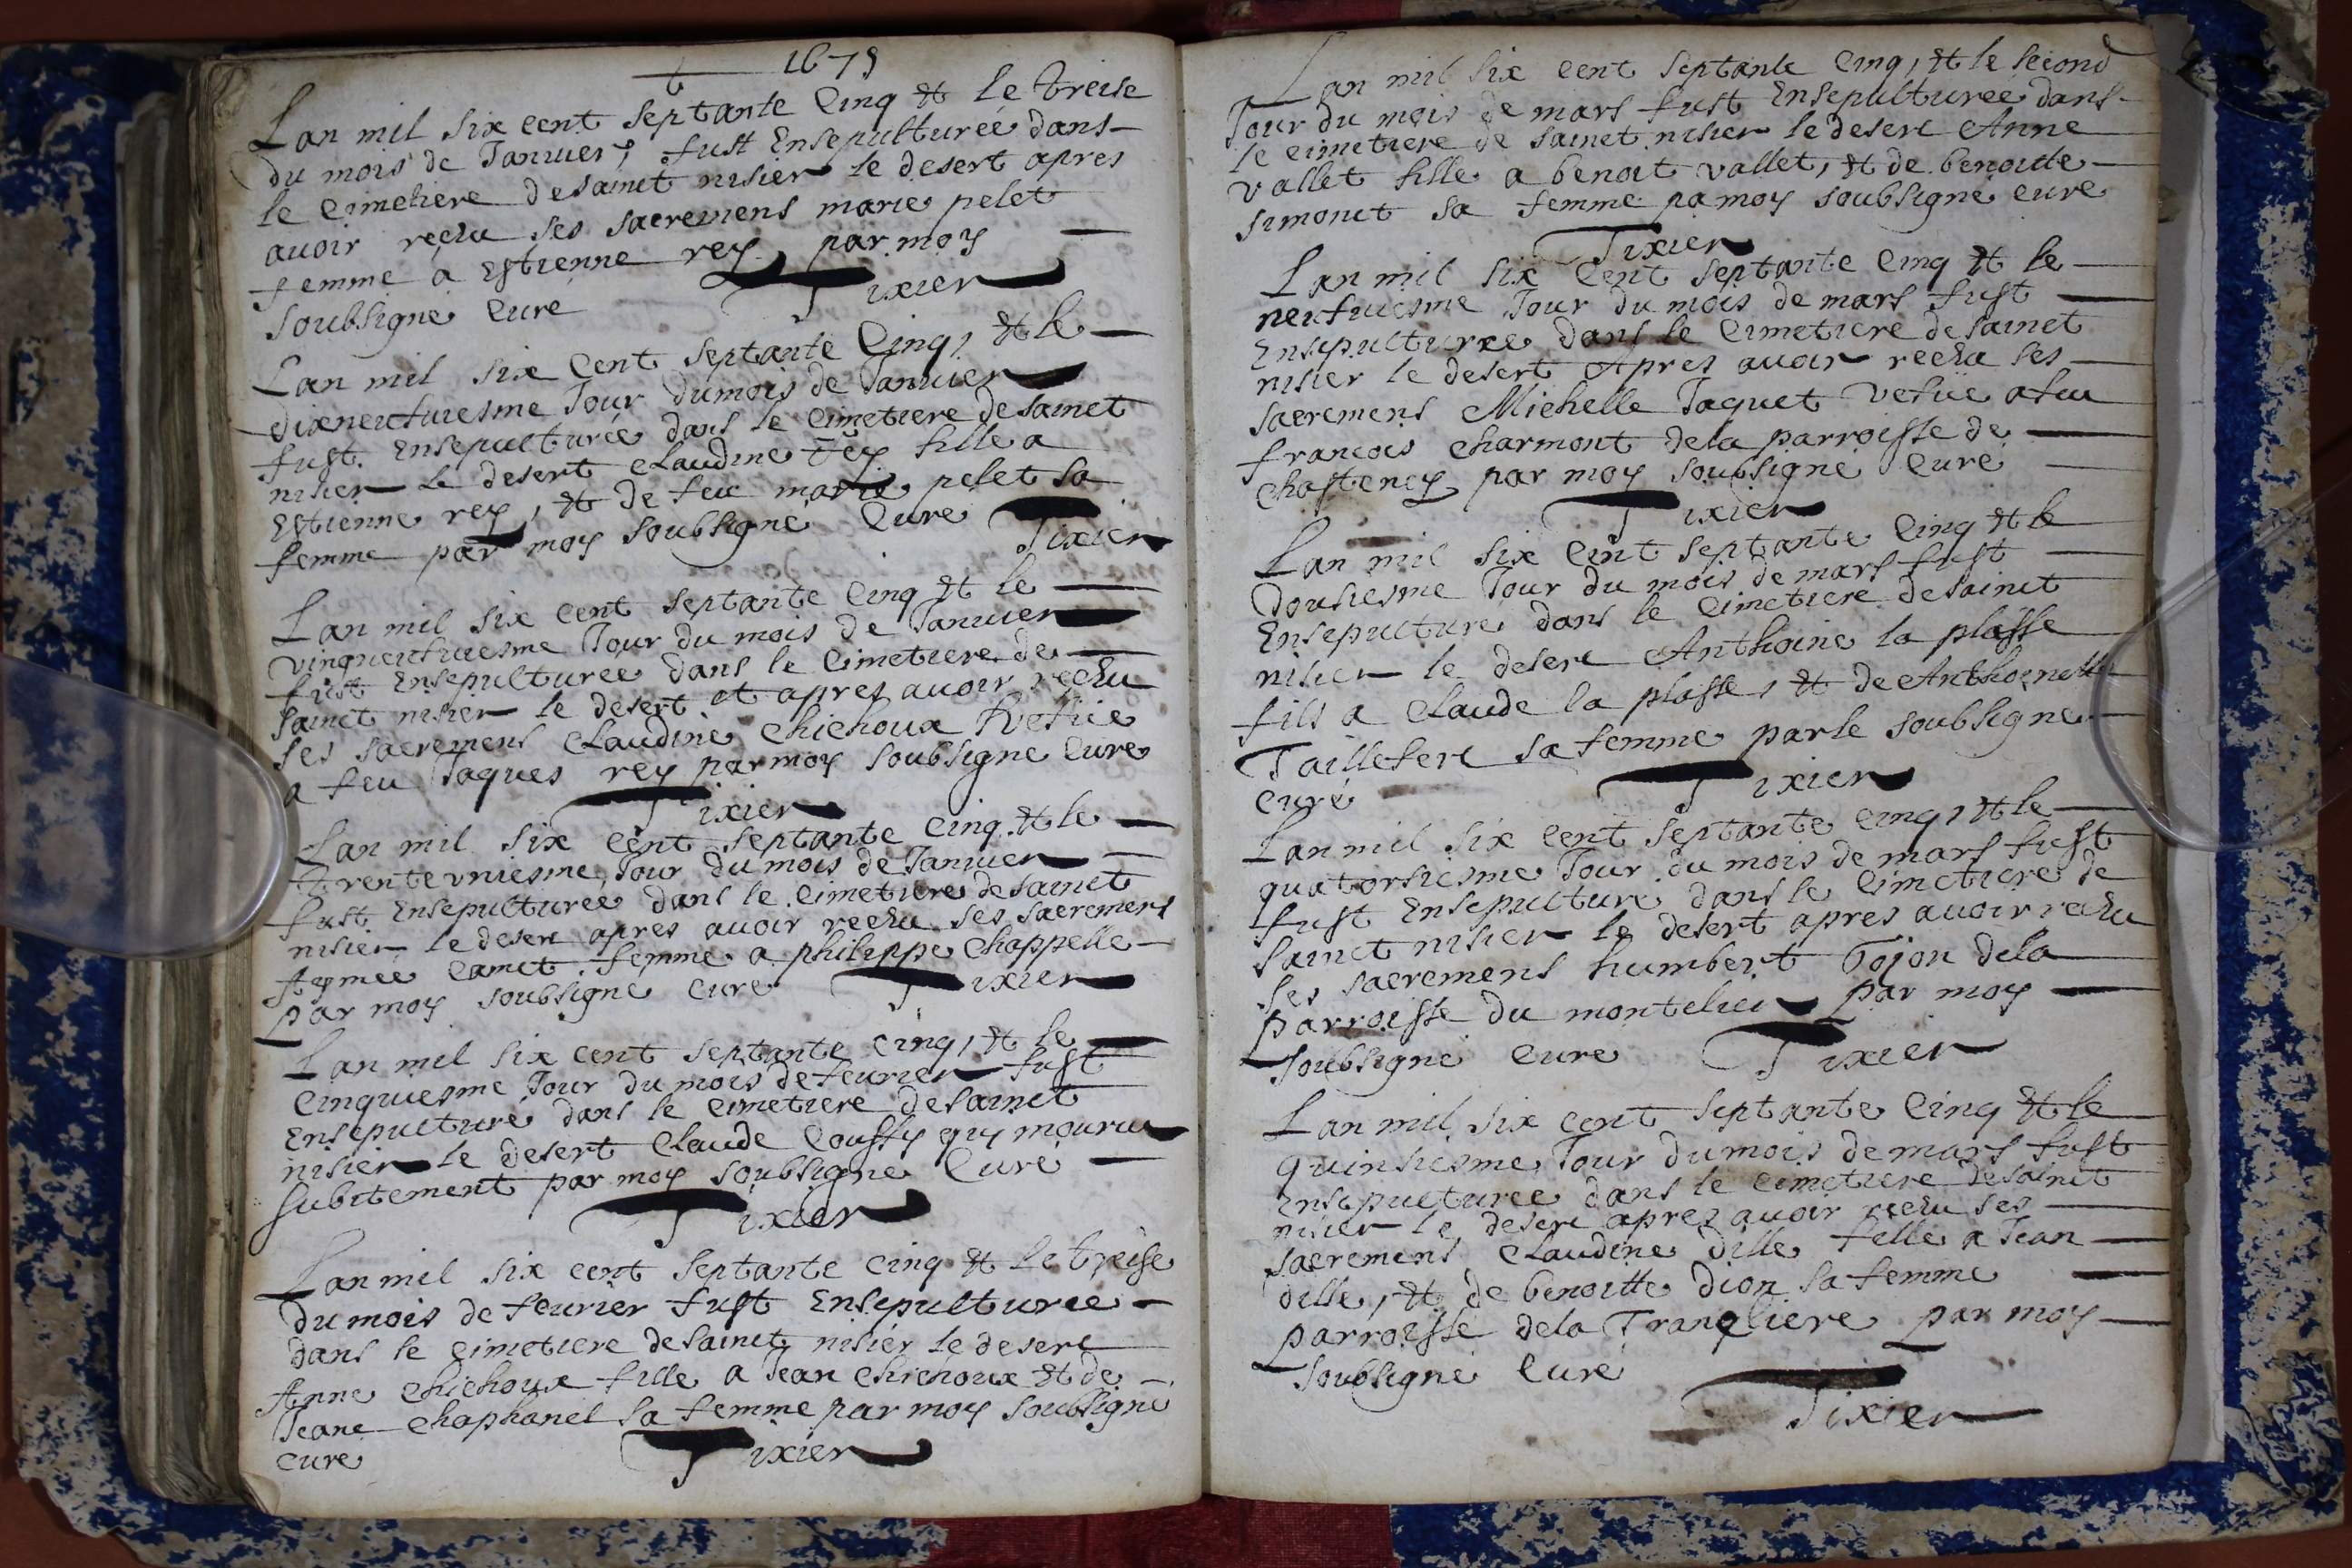 1675
Lan mil six cent septante Cinq et le treise
du mois de Januier, fust Ensepulturée dans
le Cimetiere desainct nisier le desert apres
auoir reçhu ses sacremens marie pelet
femme a Estienne rey par moy
soubsigne Curé Tixier
Lan mil six Cent septante Cinq, et le
dixneufuiesme Jour dumois de Januier
fust Ensepulturée dans le Cimetiere desainct
nisier le desert Claudine rey fille a
Estienne rey, et de feue marie pelet sa
femme par moy soubsigné Curé Tixier
Lan mil six cent septante Cinq et le
vingneufuiesme Jour du mois de Januier
fust Ensepulturee dans le Cimetiere de
sainct nisier le desert et apres auoir reçhu
ses sacremens Claudine Chichoux vefue
a feu Jaques rey par moy soubsigne Cure
Tixier
Lan mil six cent septante Cinq et le
trente vniesme Jour dumois de Januier
fust Ensepulturee dans le Cimetiere desainct
nisier le desert apres auoir rechu ses sacremens
Aymée Camet femme a philippe Chappelle
par moy soubsigne Cure Tixier
Lan mil six cent septante cinq, et le
Cinquiesme Jour du mois de feurier fust
Ensepulturé dans le cimetiere desainct
nisier le desert Claude Coussy quy mourut
subitement par moy soubsigne Curé
Tixier
Lan mil six cent septante cinq et le treise
du mois de feurier fust Ensepulturee
dans le cimetiere desainct nisier le desert
Anne Chichoux fille a Jean Chichoux et de
Jeane Chaphanel sa femme par moy soubsigné
cure Tixier
Lan mil six cent septante Cinq, et le second
Jour du mois de mars fust Ensepulturée dans
le cimetiere de sainct nisier le desert Anne
vallet fille a benoit vallet, et de benoitte
simonet sa femme pa moy soubsigne cure
Tixier
Lan mil six Cent septante Cinq et le
neufuiesme Jour du mois de mars fust
Ensepulturee dans le Cimetiere desainct
nisier le desert Apres auoir rechu ses
sacremens Michelle Jaquet vefue afeu
francois Charmont dela parroisse de
Chasteney par moy soubsigné Curé
Tixier
Lan mil six Cent septante Cinq et le
dousiesme Jour du mois de mars fust
Ensepulturé dans le Cimetiere desainct
nisier le desert Anthoine la plasse
fils a Claude la plasse, et de Anthoinette
Taillefert sa femme par le soubsigne
Curé Tixier
Lan mil six cent septante cinq, et le
quatorsiesme Jour du mois de mars fust
fust Ensepulturé dans le Cimetiere de
sainct nisier le desert apres auoir rechu
ses sacremens humbert Gojon dela
parroisse du montelier par moy
soubsigné Cure Tixier
Lan mil six cent septante Cinq et le
quinsiesme Jour dumois de mars fust
Ensepulturee dans le cimetiere desainct
nisier le desert apres auoir rechu ses
sacremens Claudine dille fille a Jean
dille, et de benoitte dion sa femme
parroisse dela Trancliere par moy
soubsigné Curé
Tixier